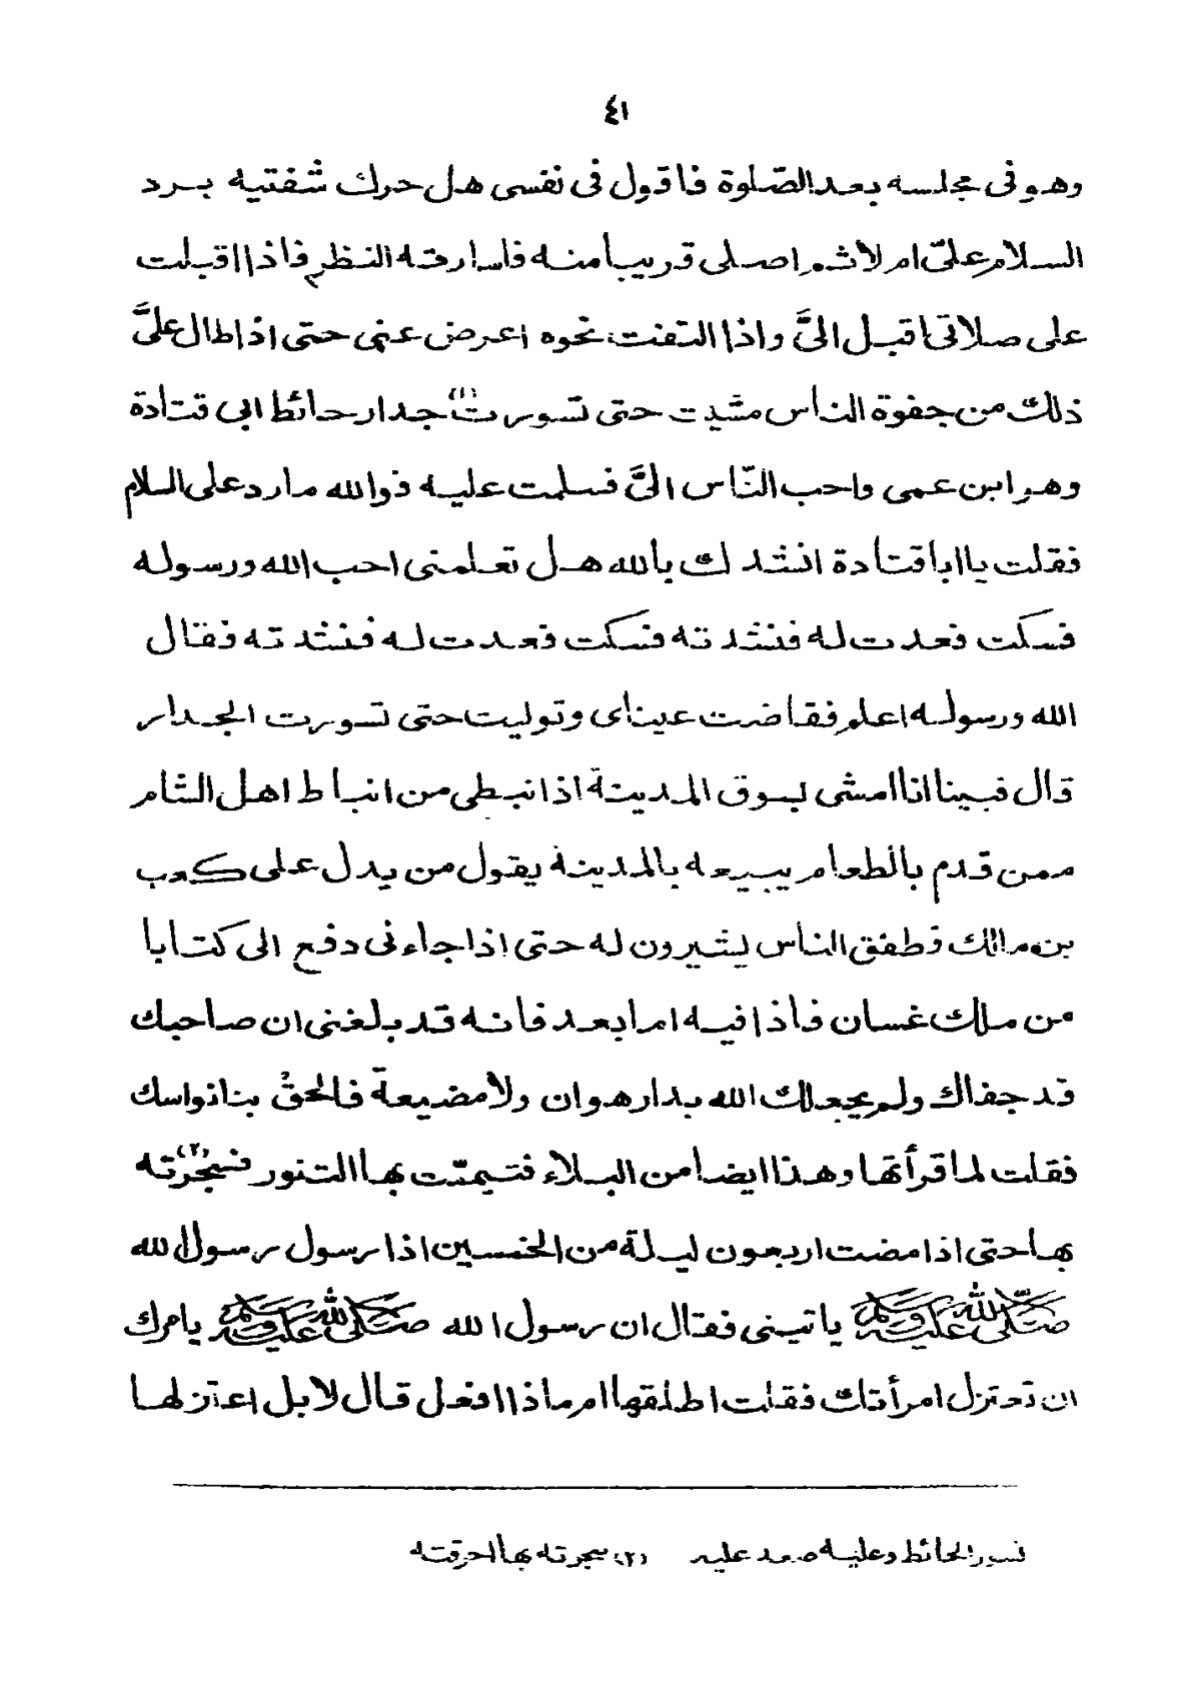 ٤١
وهو فى مجلسه بعد الصّلوة فاقول فى نفسى هل حرك شفتيه برد
السلام علىّ ام لا ثم اصلى قريبا منه فاسارقه النظر فاذا اقبلت
على صلاتى اقبل الىَّ واذا التفت نحوه اعرض عنى حتى اذا طال علىَّ
ذلك من جفوة الناس مشيت حتى تسورت (١) جدار حائط ابى قتادة
وهو ابن عمى واحب النّاس الىَّ فسلمت عليه فوالله ما رد على السلام
فقلت يا ابا قتادة انشدك بالله هل تعلمنى احب الله ورسوله
فسكت فعدت له فنشدته فسكت فعدت له فنشدته فقال
الله ورسوله اعلم ففاضت عيناى وتوليت حتى تسورت الجدار
قال فبينا انا امشى بسوق المدينة اذا نبطى من انباط اهل الشام
ممن قدم بالطعام يبيعه بالمدينة يقول من يدل على كعب
بن مالك فطفق الناس يشيرون له حتى اذا جاءنى دفع الى كتابا
من ملك غسان فاذا فيه اما بعد فانه قد بلغنى ان صاحبك
قد جفاك ولم يجعلك الله بدار هوان ولا مضيعة فالحقْ بنا نواسك
فقلت لما قرأتها وهذا ايضا من البلاء فتيممّت بها التنور فسجرته (٢)
بها حتى اذا مضت اربعون ليلة من الخمسين اذا رسول رسول الله
صَلَّى اللهُ عَلَيْهِ وَسَلَّمَ ياتينى فقال ان رسول الله صَلَّى اللهُ عَلَيْهِ وَسَلَّمَ يامرك
ان تعتزل امرأتك فقلت اطلقها ام ماذا افعل قال لا بل اعتزلها
تسور الحائط وعليه صعد عليه (٢) سجرته بها احرقته